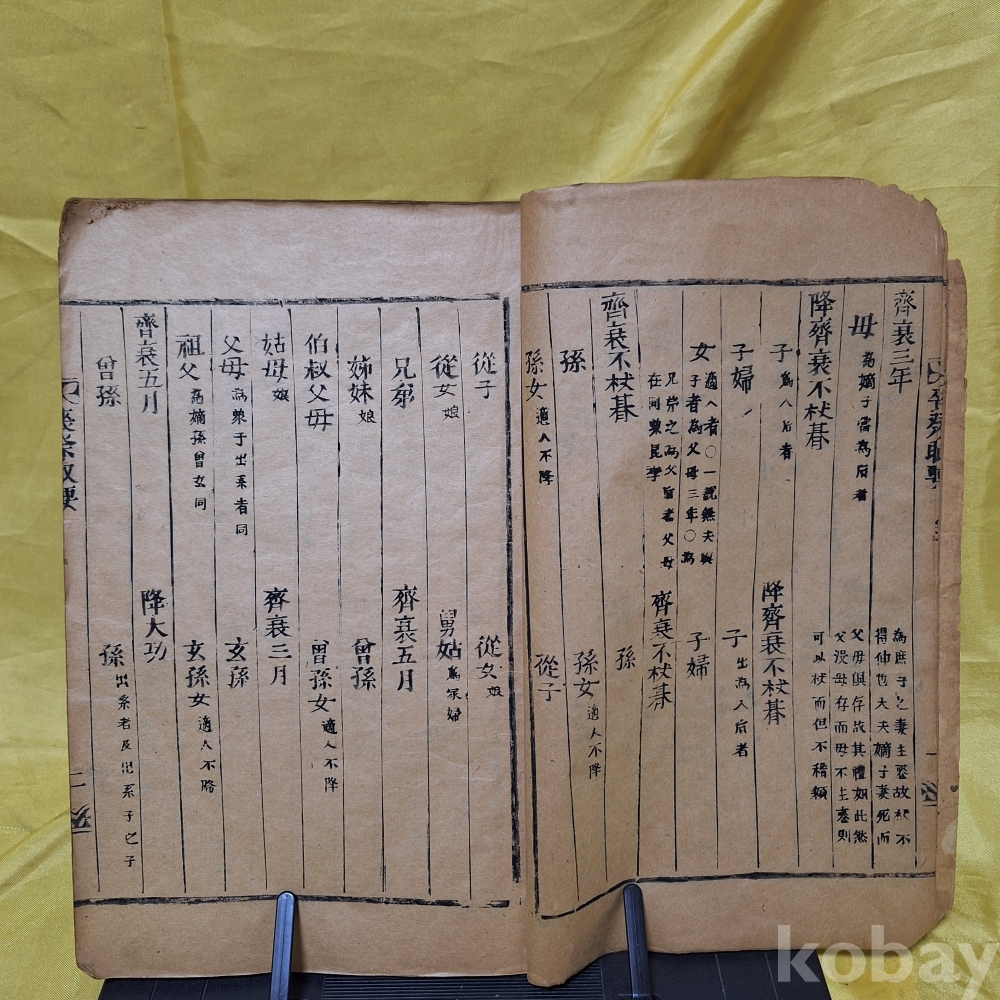 齊衰三年
母 為嫡子當為后者
降齊衰不杖朞
子 為人后者
子婦
女 適人者〇一說無夫與
子者為父母三年〇為
兄弟之為父后者父母
在
齊衰不杖朞
孫
孫女 適人不降
為庶子之妻主喪故起不
得伸也大夫嫡子妻死而
父母俱存故其禮如此然
父沒母存而母不主喪則
可以杖而但不稽顙
降齊衰不杖朞
子 出為人后者
子婦
齊衰不杖朞
孫
孫女 適人不降
從子
從子
從女 娘
兄弟
姊妹 娘
伯叔父母
姑母 娘
父母 為衆子出系者同
祖父 為嫡孫曾玄同
齊衰五月
曾孫
從女 娘
舅姑 為冢婦
齊衰五月
曾孫
曾孫女 適人不降
齊衰三月
玄孫
玄孫女 適人不降
降大功
孫 出系者及出系子之子
二
kobay